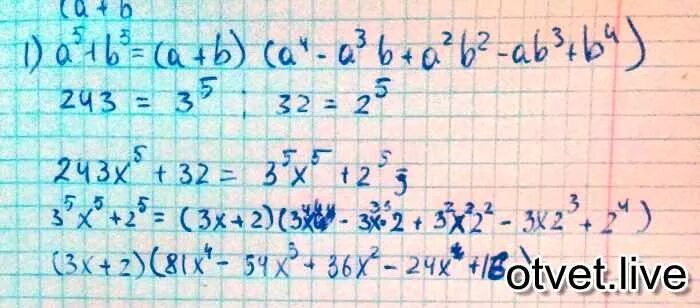 (a + b
1) a⁵ + b⁵ = (a + b) (a⁴ - a³b + a²b² - ab³ + b⁴)
243 = 3⁵ ; 32 = 2⁵
243x⁵ + 32 = 3⁵x⁵ + 2⁵
3⁵x⁵ + 2⁵ = (3x + 2)(3⁴x⁴ - 3³x³·2 + 3²x²2² - 3x2³ + 2⁴)
(3x + 2)(81x⁴ - 54x³ + 36x² - 24x + 16)
otvet.live